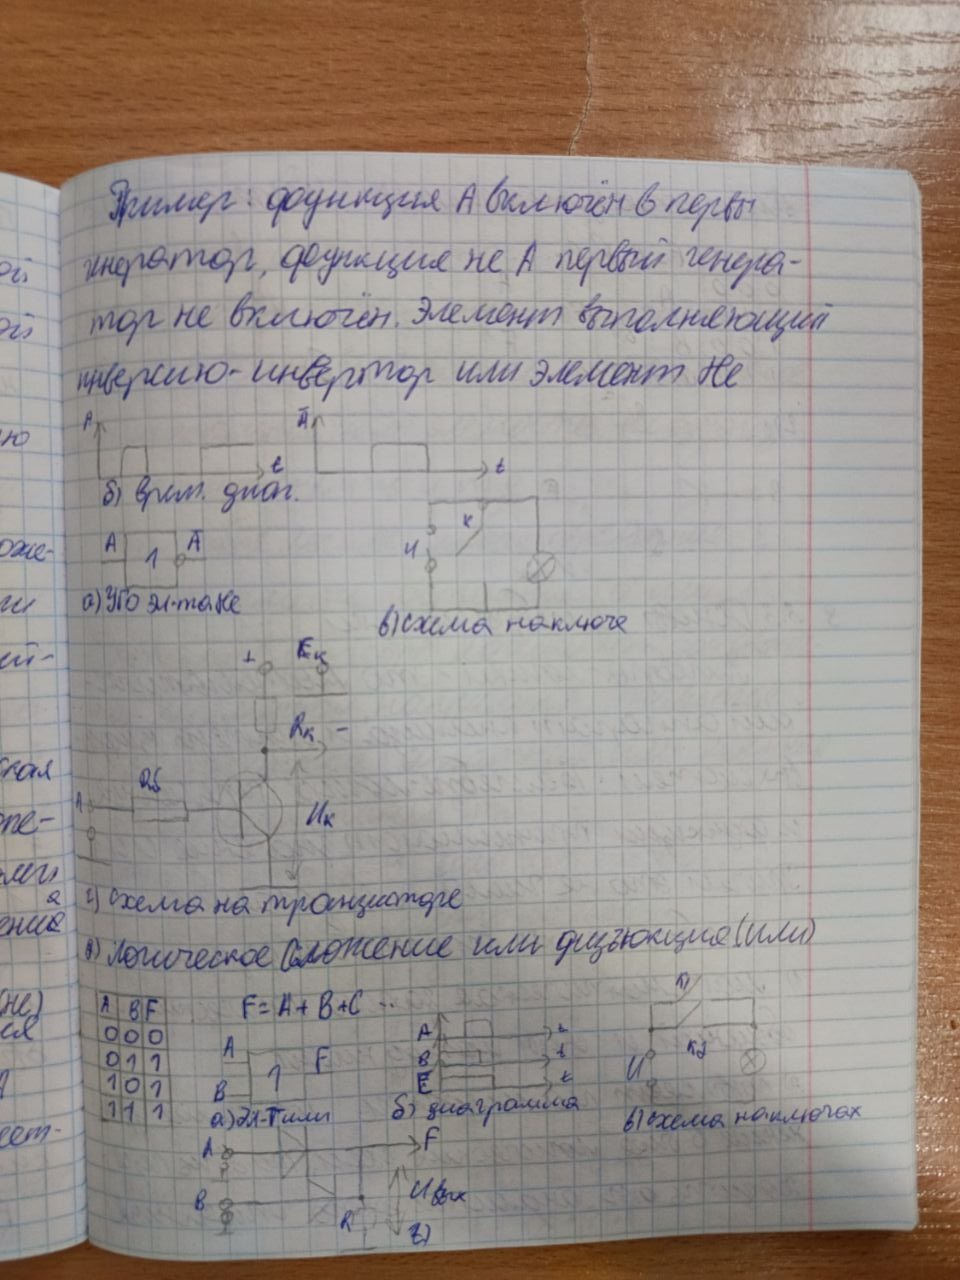 Пример: функция А включён в первы
генератор, функция не А первый генера-
тор не включён. Элемент выполняющий
инверсию - инвертор или элемент Не
A t Ā t
б) врем. диаг.
A 1 Ā
К
И
а) УГО эл-та Не
в) схема на ключе
+ Eк
Rк -
Rб
A
Uк
г) схема на транзисторе
Логическое сложение или дизъюкция (или)
A B F
0 0 0
0 1 1
1 0 1
1 1 1
F = A + B + C ..
A B 1 F
а) Эл-т или
A t
B t
F t
б) диаграмма
К2
U
в) схема на ключах
A F
B
R
Uвых
г)